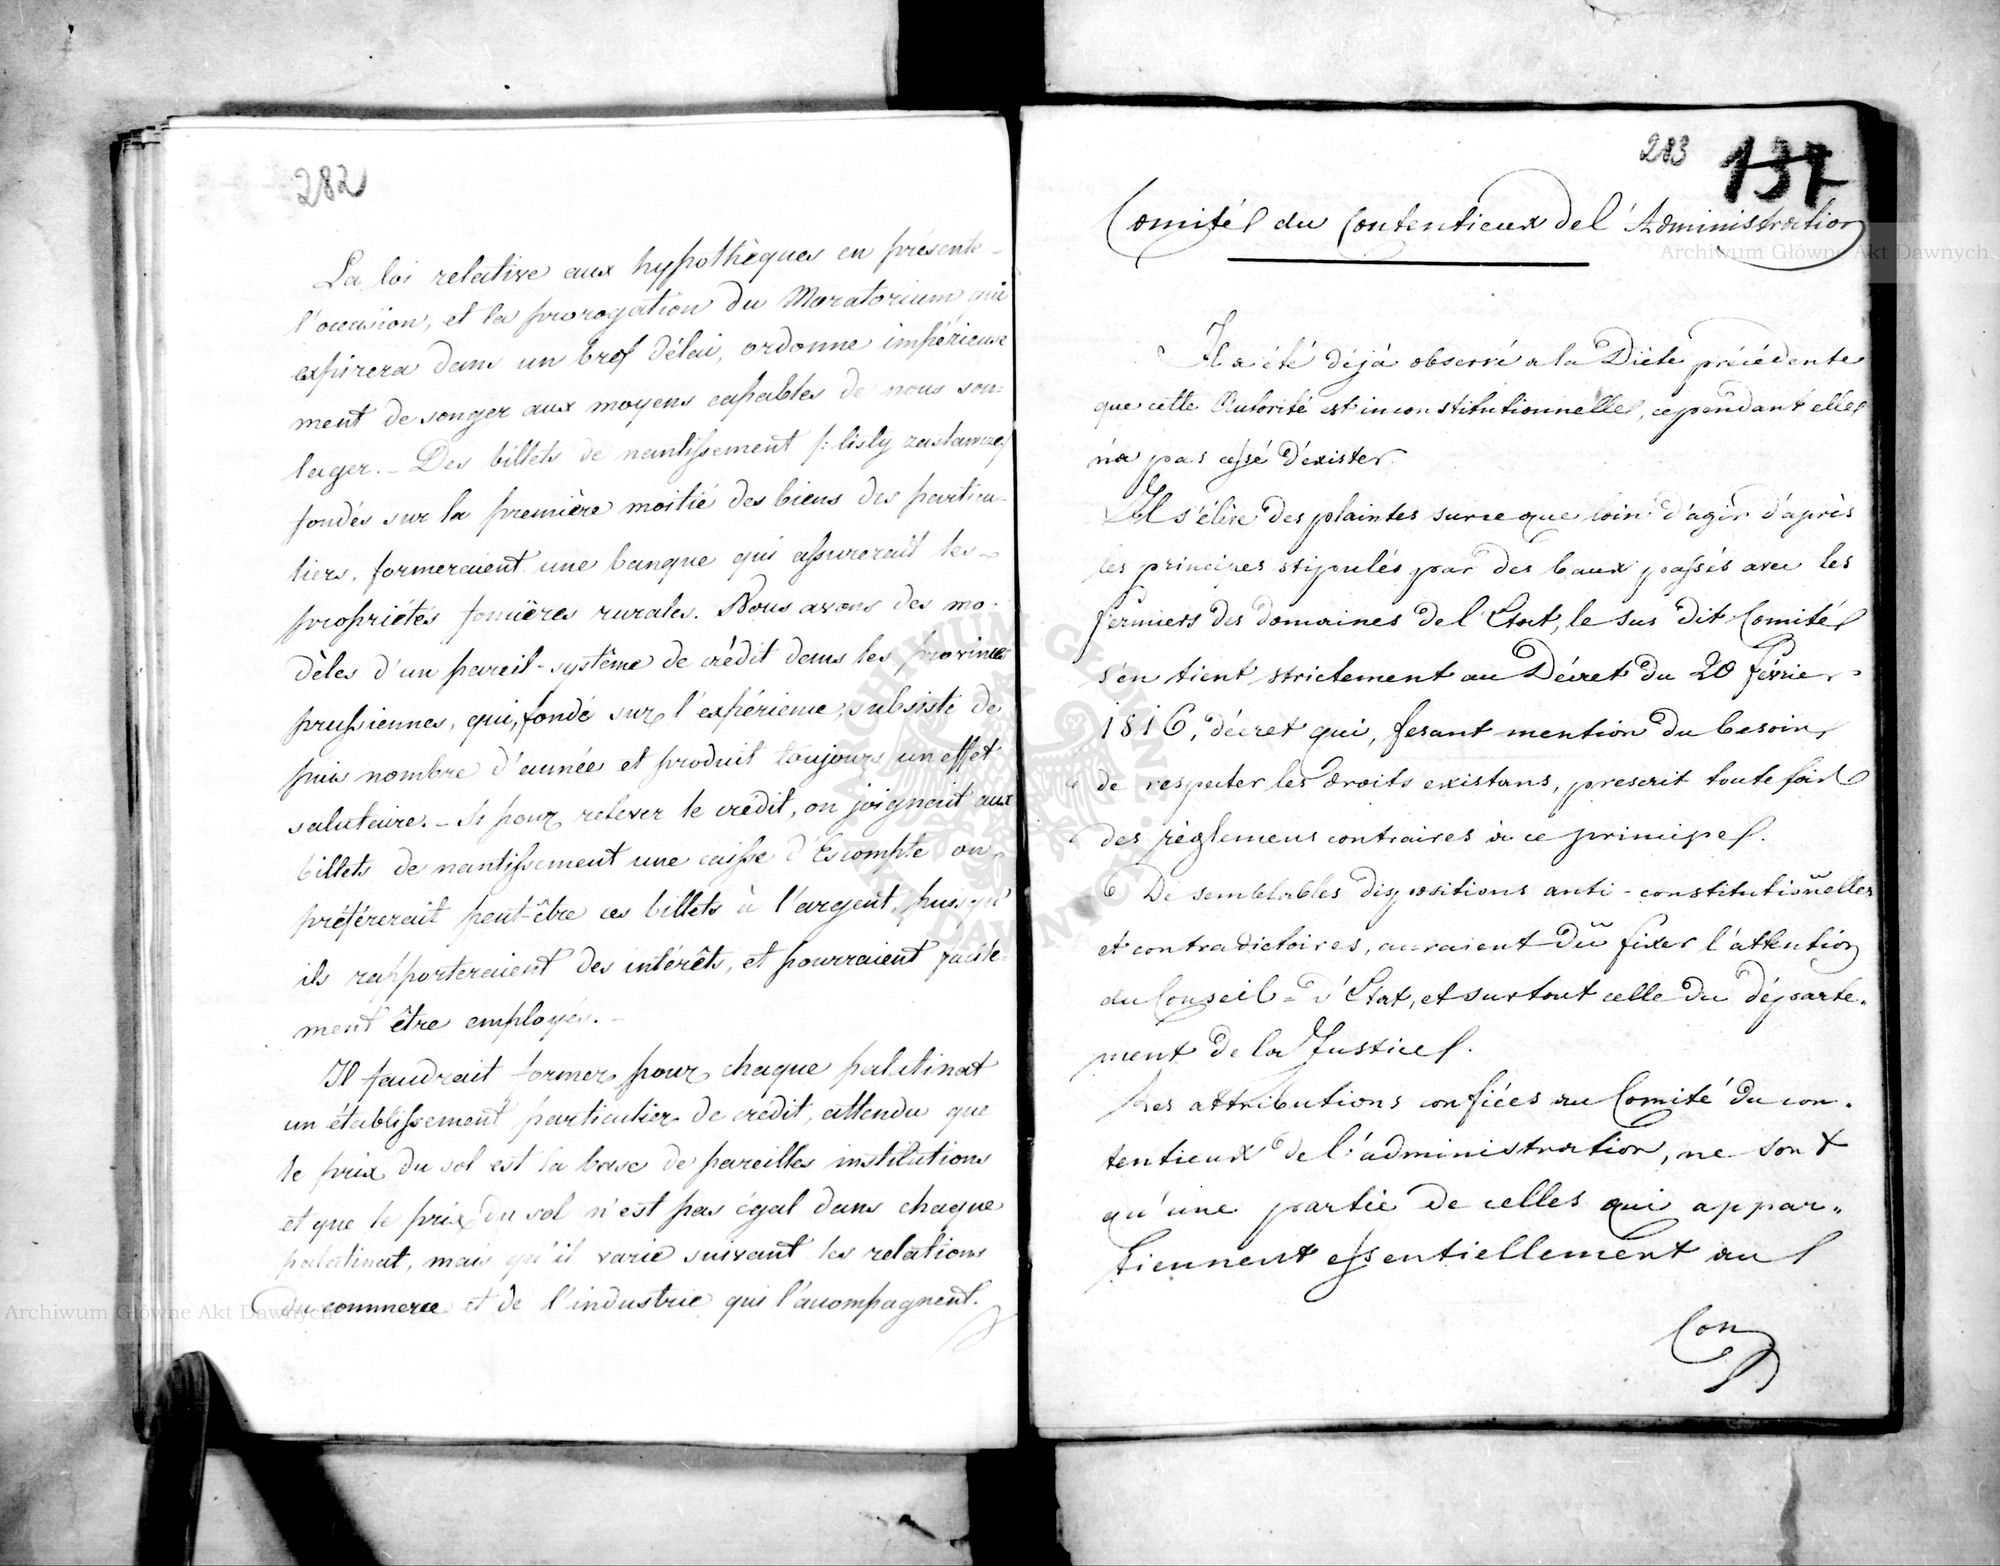 282
La loi relative aux hypothèques en présente
l'occasion, et la prorogation du Moratorium qui
expirera dans un bref délai, ordonne impérieuse
ment de songer aux moyens capables de nous sou=
lager. _ Des billets de nantissement /: listy zastawne/
fondés sur la première moitié des biens des particu-
liers, formeraient une banque qui assurerait les
propriétés foncières rurales. Nous avons des mo-
dèles d'un pareil système de crédit dans les provinces
prussiennes, qui, fondé sur l'expérience, subsiste de
puis nombre d'année et produit toujours un effet
salutaire. _ Si pour relever le crédit, on joignait aux
billets de nantissement une caisse d'Escompte on
préférerait peut-être ces billets à l'argent, puisqu'
ils rapporteraient des intérêts, et pourraient facile-
ment être employés. _
Il faudrait former pour chaque palatinat
un établissement particulier de crédit, attendu que
le prix du sol est la base de pareilles institutions
et que le prix du sol n'est pas égal dans chaque
palatinat, mais qu'il varie suivant les relations
du commerce et de l'industrie qui l'acompagnent.
283 137
Comité du Contentieux de l'Administration
Il a été déjà observé a la Diète précédente
que cette Autorité est inconstitutionnelle, cependant elle
n'a pas cessé d'exister.
Il s'élève des plaintes sur ce que loin d'agir d'après
les principes stipulés par des baux passés avec les
fermiers des domaines de l'Etat, le sus dit Comité
s'en tient strictement au Décret du 20 Février
1816, décret qui, fesant mention du besoin
de respecter les droits existans, prescrit toute fois
des règlemens contraires à ce principe.
De semblables dispositions anti-constitutionnelles
et contradictoires, auraient dû fixer l'attention
du Conseil = d'Etat, et surtout celle du départe=
ment de la Justice.
Les attributions confiées au Comité du con=
tentieux de l'administration, ne sont
qu'une partie de celles qui appar=
tiennent essentiellement au
Con
Archiwum Główne Akt Dawnych
Archiwum Główne Akt Dawnych
ARCHIWUM GŁÓWNE AKT DAWNYCH